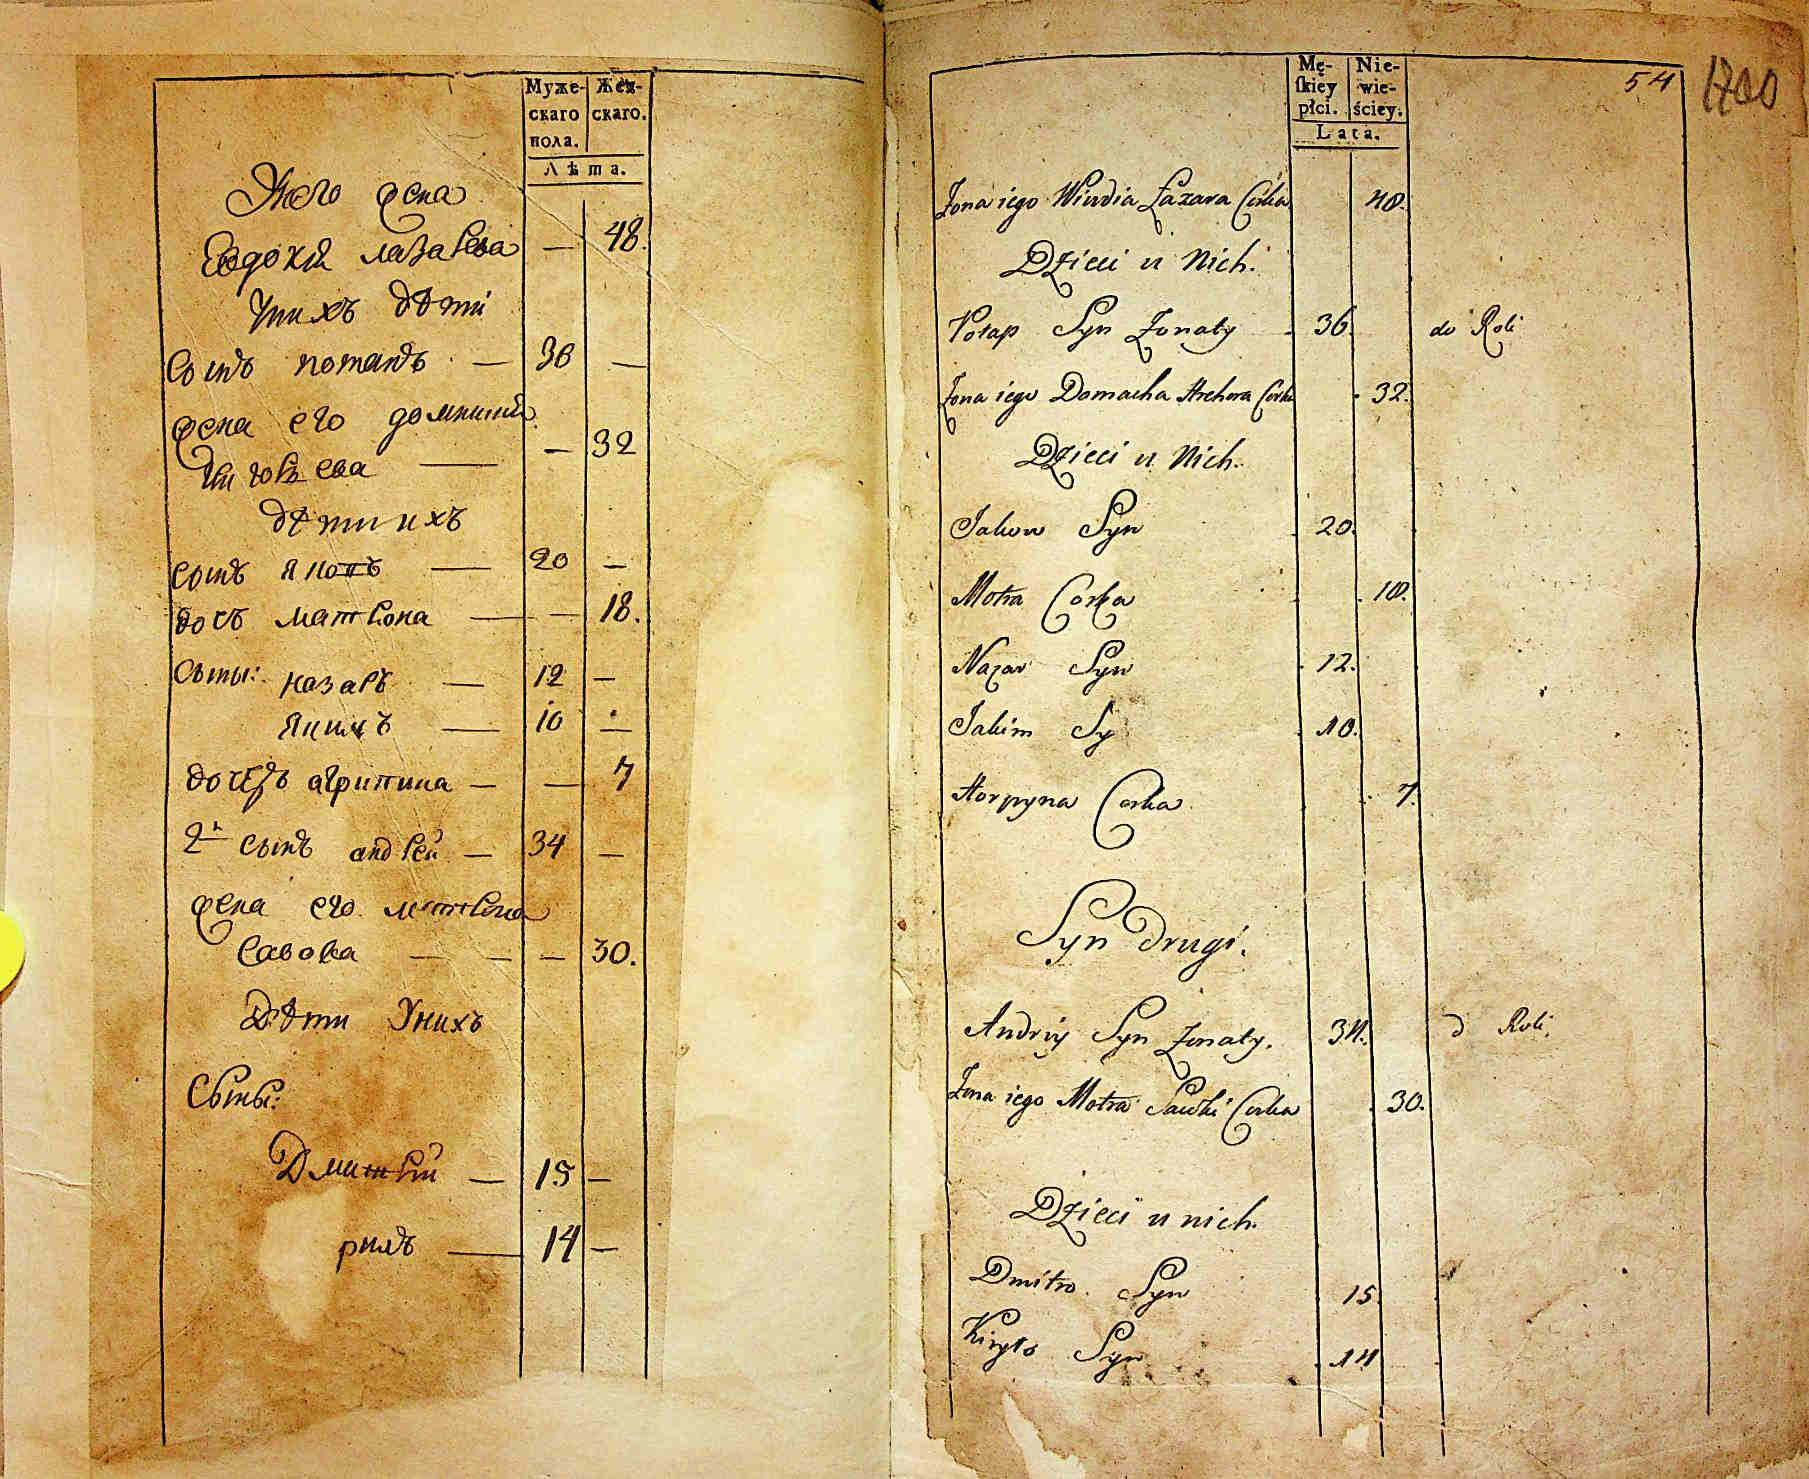 Муже- Жен-
скаго скаго.
пола.
Лѣта.
Унего жена
Евдокїя лазарева — 48.
Уних дѣти
Сынъ потапъ — 36 —
жена его домникия
Григорьева — — 32
дѣти ихъ
сынъ яковъ — 20 —
дочъ матрона — — 18.
Сыны: назаръ — 12 —
якимъ — 10 —
дочерь агрипина — — 7
2й сынъ андрей — 34 —
жена его матрона
Савова — — — 30.
Дѣти Унихъ
Сыны:
Дмитрїй — 15 —
— 14 —
Mę- Nie-
skiey wie-
płci. ściey.
Lata.
54 1700
Żona iego Łazara Córka 48.
Dzieci u Nich.
Potap Syn Żonaty 36. do Roli
Żona iego Domacha Hrehora Corka 32.
Dzieci u Nich.
Jakow Syn 20.
Motra Corka 18.
Nazar Syn 12.
Jakim Sy 10.
Horpyna Corka 7.
Syn drugi.
Andriy Syn Żonaty. 34. d Roli.
Żona iego Motra Sawki Corka 30.
Dzieci u nich.
Dmitro Syn 15.
Kiryło Syn 14